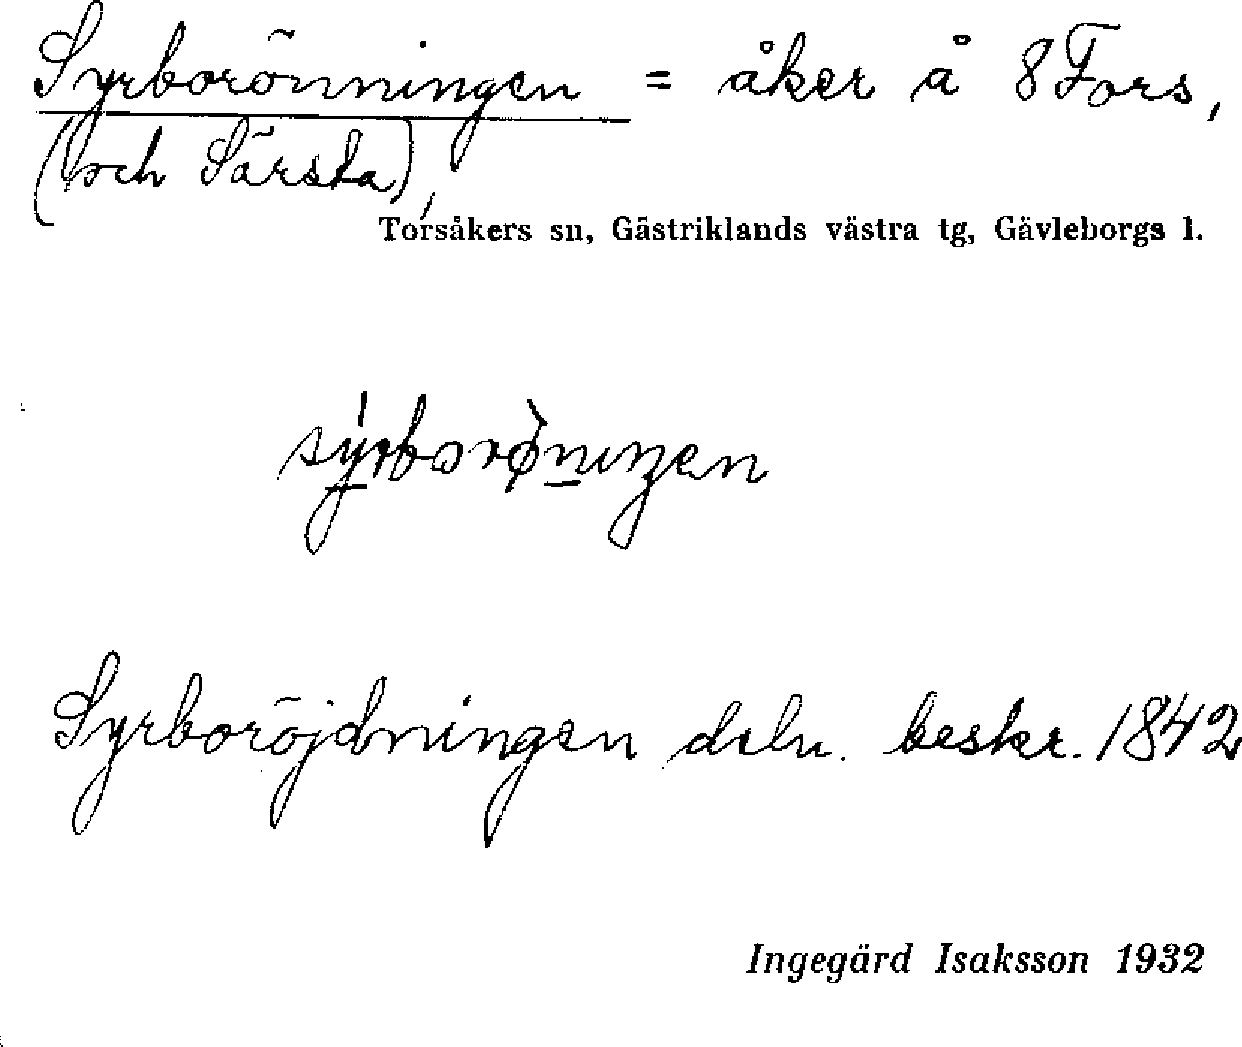 Syrborönningen = åker å 8 Fors,
(och Särsta),
Torsåkers sn, Gästriklands västra tg, Gävleborgs l.
sý̱rborø̀ṉıŋen
Syrboröjdningen deln. beskr. 1842
Ingegärd Isaksson 1932